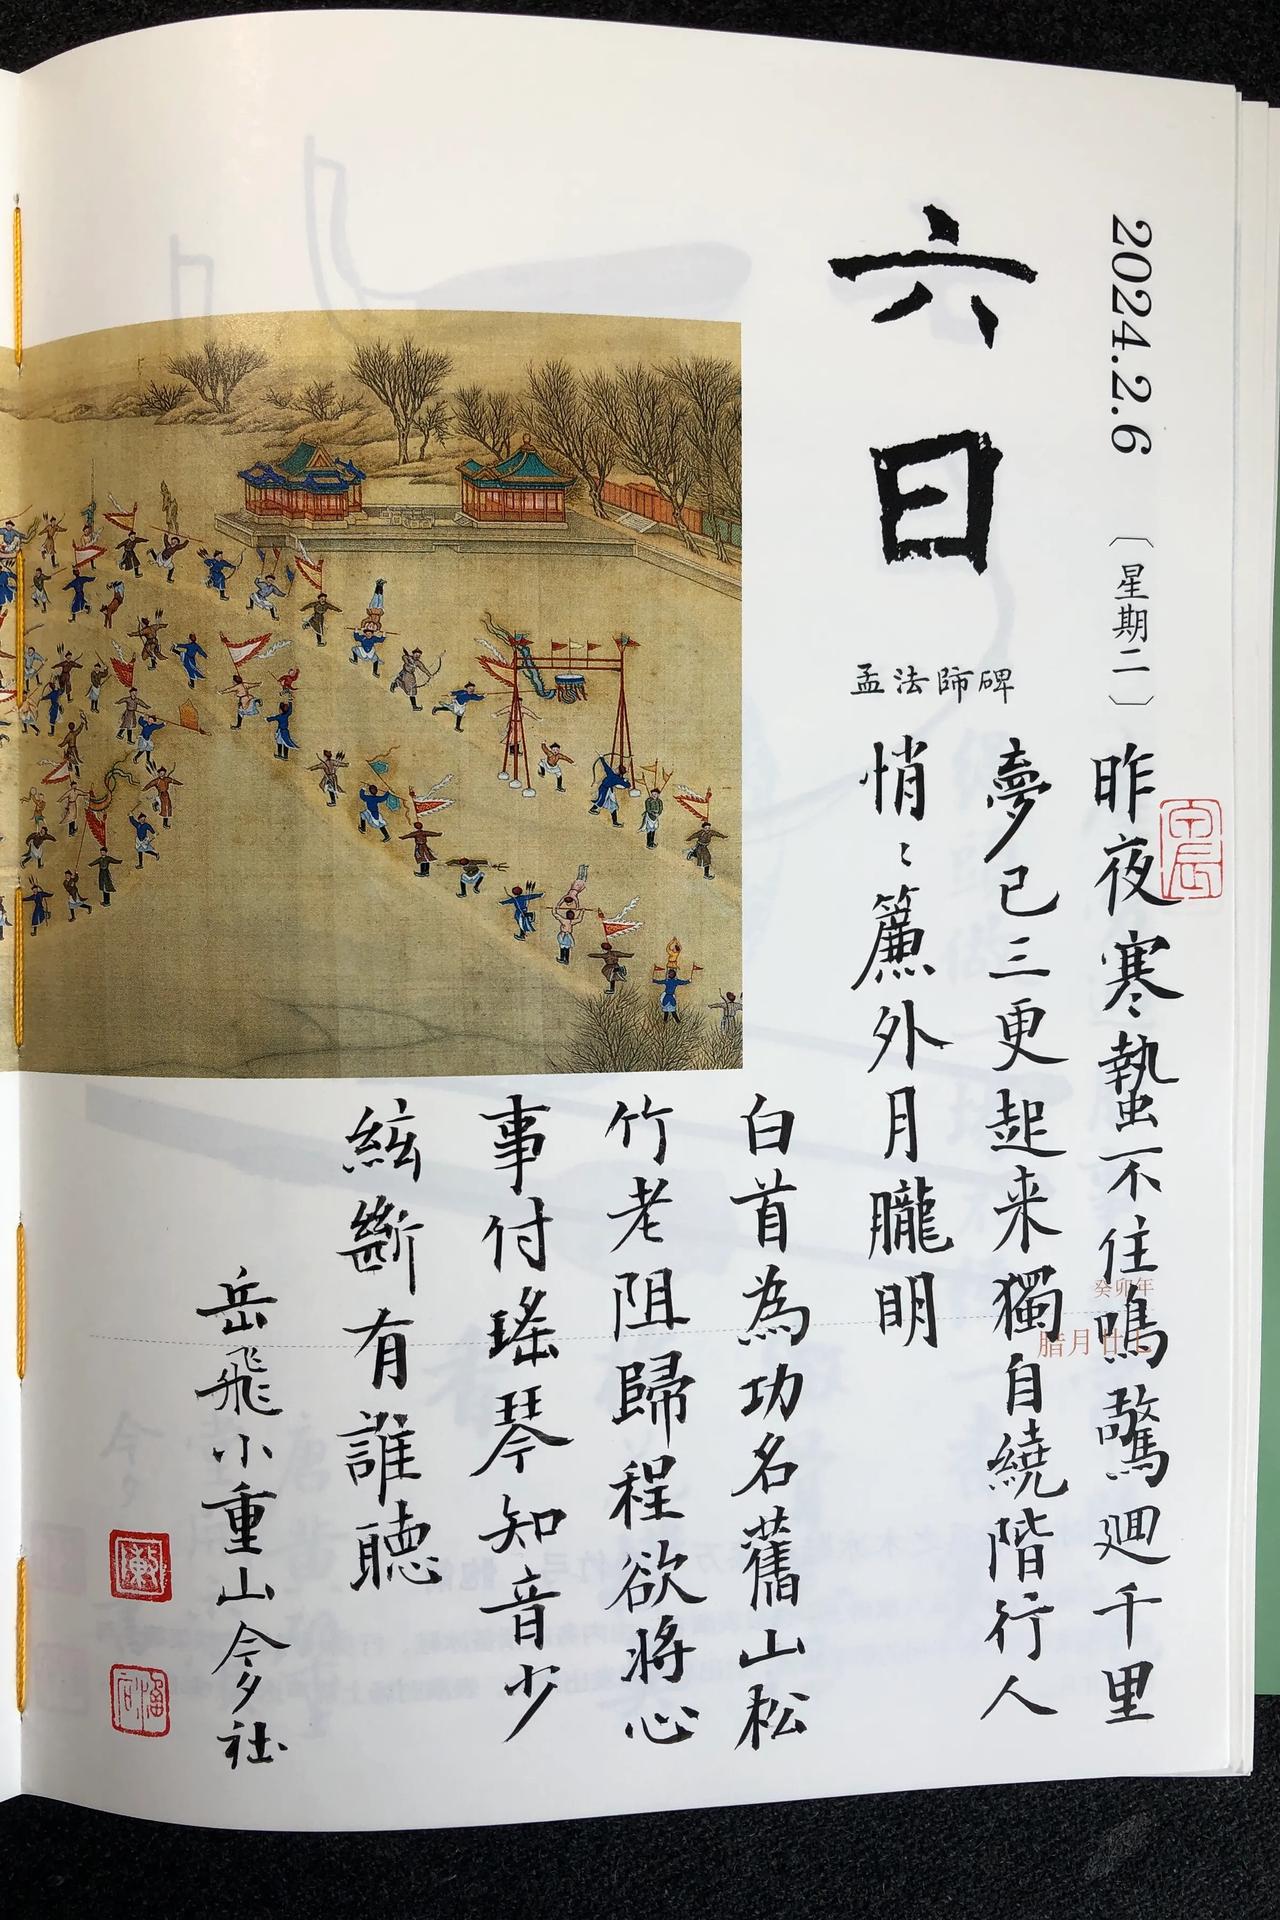 2024.2.6 〔星期二〕
六日
孟法師碑
癸卯年
腊月廿七
昨夜寒蛩不住鳴驚迴千里
夢已三更起来獨自繞階行人
悄〻簾外月朧明
白首為功名舊山松
竹老阻歸程欲將心
事付瑤琴知音少
絃斷有誰聽
岳飛小重山